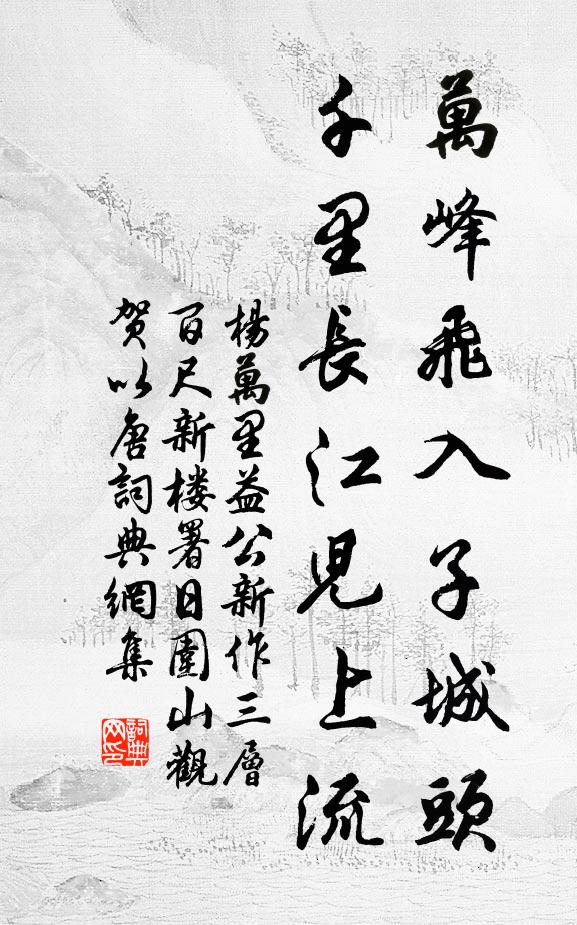 萬峰飛入子城頭
千里長江見上流
楊萬里益公新作三層
百尺新楼署日圍山觀
賀以唐詞典網集
詞典网印